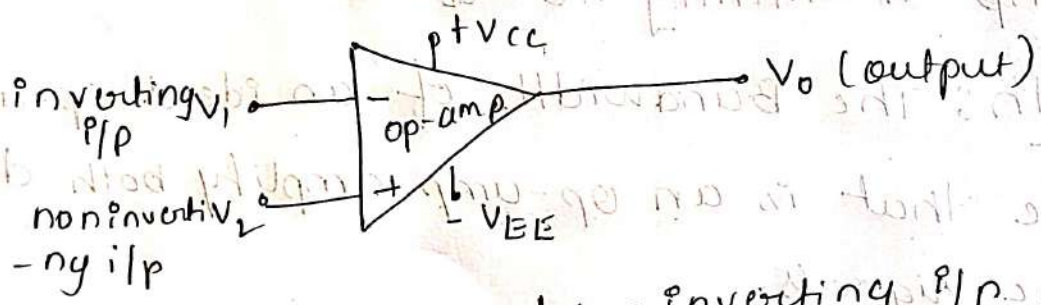 +Vcc
inverting V1
i/p
-
op-amp
Vo (output)
+
noninverti V2
-ng i/p
- VEE
inverting i/p